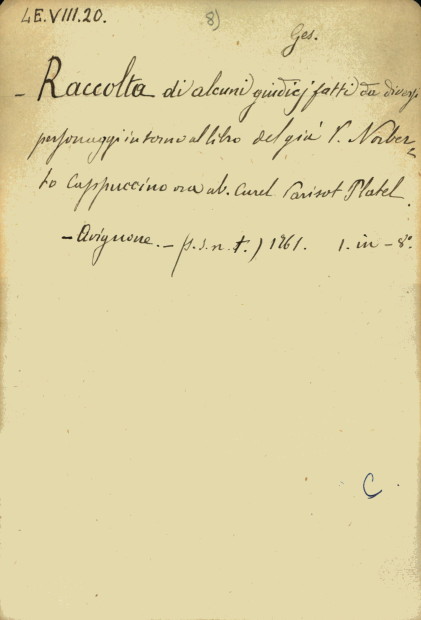 4E.VIII.20.
8)
Ges.
- Raccolta di alcuni giudicj fatti da diversi
personaggi intorno al libro del già P. Norber-
to Cappuccino ora ab. Curel Parisot Platel.
- Avignone. - (s. s. n. t.) 1761. 1. in - 8°.
C